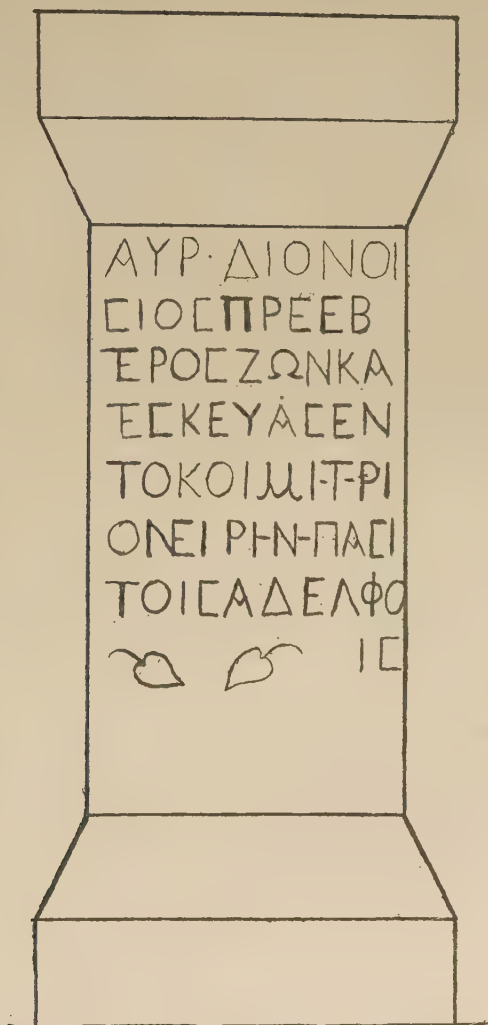 ΑΥΡ· ΔΙΟΝΟΙ
ϹΙΟϹΠΡΕΕΒ
ΤΕΡΟϹΖΩΝΚΑ
ΤΕϹΚΕΥΑϹΕΝ
ΤΟΚΟΙΜΗΤΗΡΙ
ΟΝΕΙΡΗΝΗΠΑϹΙ
ΤΟΙϹΑΔΕΛΦΟ
ΙϹ